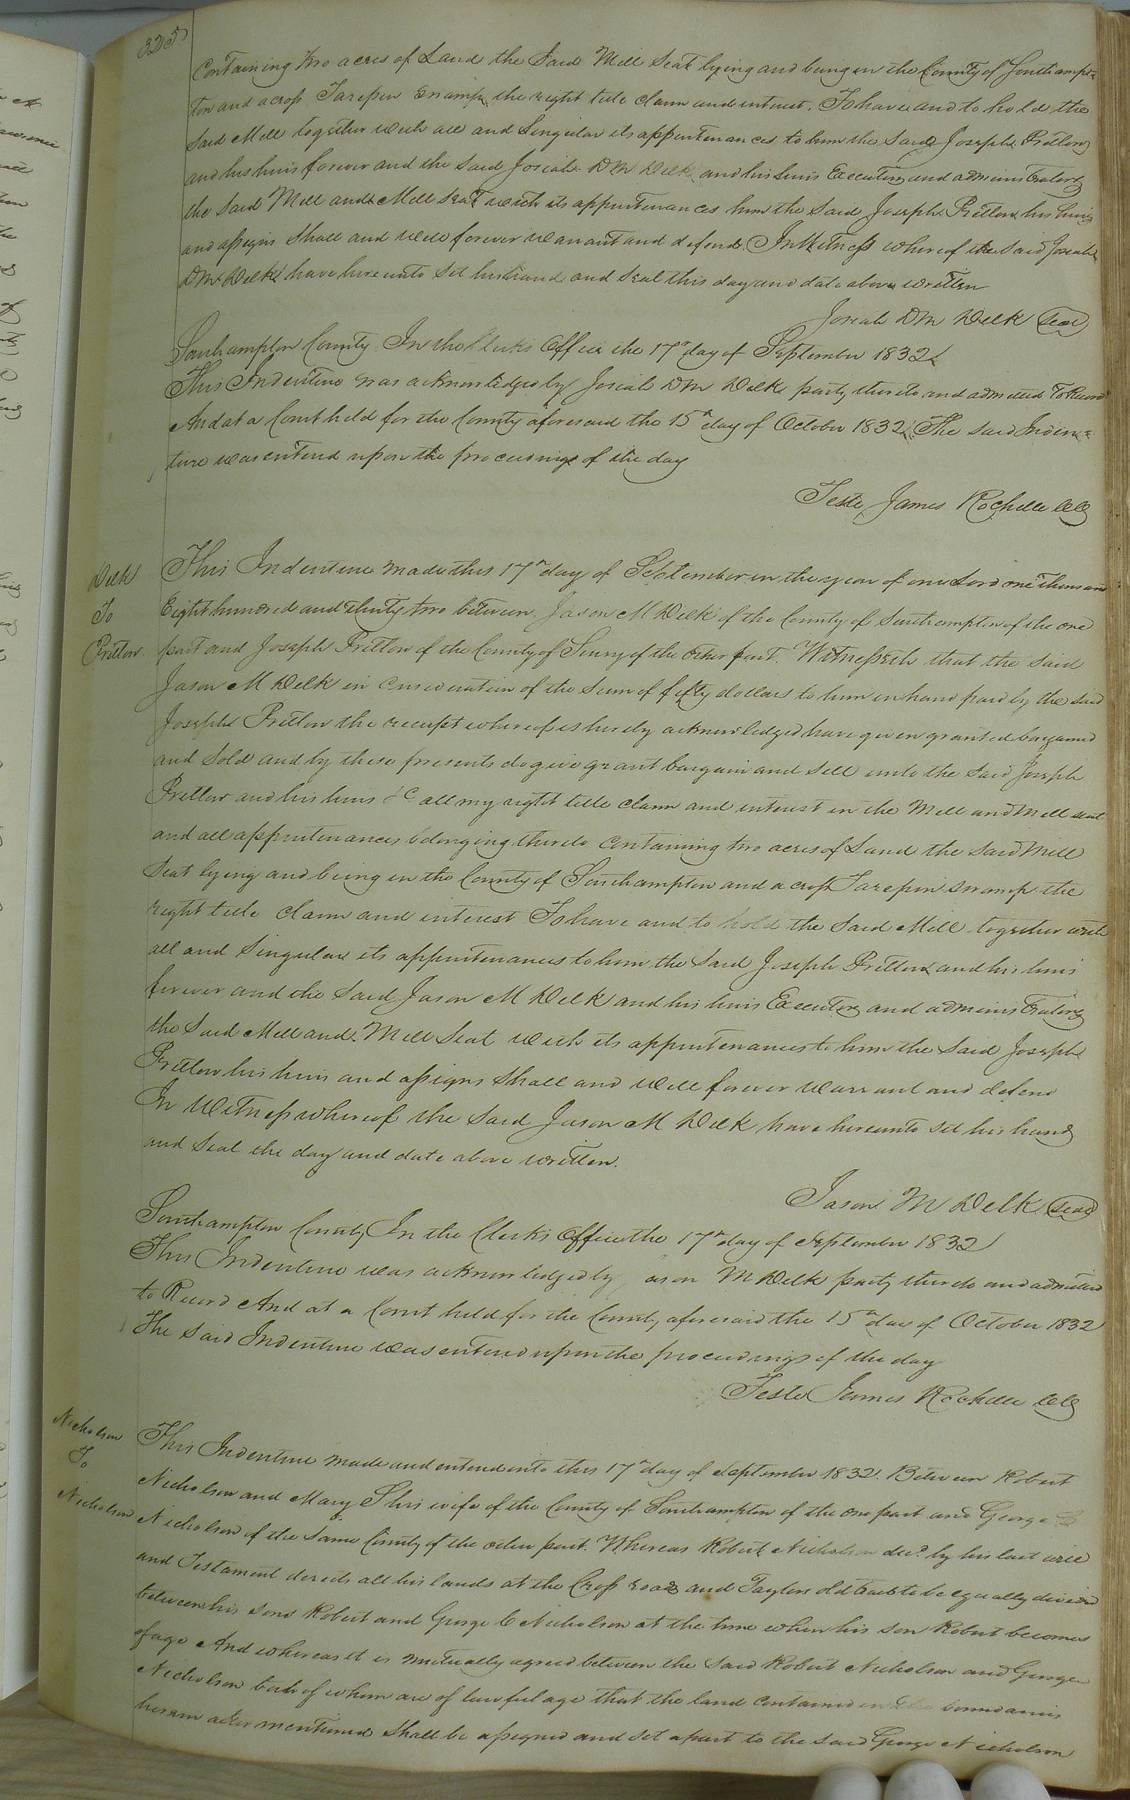 325
Containing two acres of Land the Said Mill Seat lying and being in the County of Southamp=
ton and across Tarepin Swamp, the right title claim and interest. To have and to hold the
Said Mill together with all and Singular its appurtenances to him the Said Joseph Pretlow
and his heirs forever and the said Josiah DM Delk and his heirs Executors and administrators
the Said Mill and Mill Seat with its appurtenances him the Said Joseph Pretlow his heirs
and assigns Shall and will forever warrant and defend. In Witness whereof the said Josiah
DM Delk have hereunto set his hand and seal this day and date above written
Josiah DM Delk Seal
Southampton County In the Clerks Office the 17th day of September 1832
This Indenture was acknowledged by Josiah DM Delk party thereto and admitted to Record
And at a Court held for the County aforesaid the 15th day of October 1832, The said Inden=
ture was entered upon the proceedings of the day
Teste James Rochelle CC
Delk
To
Pretlow
This Indenture made this 17th day of September in the year of our Lord one Thousand
Eight hundred and thirty two between Jason M Delk of the County of Southampton of the one
part and Joseph Pretlow of the County of Surry of the other part. Witnesseth that the said
Jason M Delk in consideration of the Sum of fifty dollars to him in hand paid by the said
Joseph Pretlow the receipt whereof is hereby acknowledged have given granted bargained
and Sold and by these presents do give grant bargain and sell unto the Said Joseph
Pretlow and his heirs &c all my right title claim and interest in the Mill and Mill seat
and all appurtenances belonging thereto Containing two acres of Land the Said Mill
Seat lying and being in the County of Southampton and across Tarepin Swamp the
right title claim and interest To have and to hold the Said Mill together with
all and Singular its appurtenances to him the Said Joseph Pretlow and his heirs
forever and the Said Jason M Delk and his heirs Executors and administrators
the Said Mill and Mill Seat with its appurtenances to him the Said Joseph
Pretlow his heirs and assigns Shall and will forever warrant and defend
In Witness whereof the Said Jason M Delk have hereunto set his hand
and Seal the day and date above written.
Jason M Delk Seal
Southampton County In the Clerks Office the 17th day of September 1832
This Indenture was acknowledged by ason M Delk party thereto and admitted
to Record And at a Court held for the County aforesaid the 15th day of October 1832
The Said Indenture was entered upon the proceedings of the day
Teste James Rochelle CC
Nicholson
To
Nicholson
This Indenture made and entered into this 17th day of September 1832. Between Robert
Nicholson and Mary S his wife of the County of Southampton of the one part and George C
Nicholson of the Same County of the other part. Whereas Robert Nicholson decd. by his last will
and Testament devised all his lands at the Cross roads and Taylors old tract to be equally divided
between his sons Robert and George C Nicholson at the time when his son Robert becomes
of age And whereas it is mutually agreed between the Said Robert Nicholson and George
Nicholson both of whom are of lawful age that the land contained in the boundaries
herein after mentioned Shall be assigned and set apart to the said George Nicholson